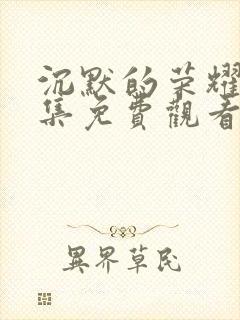 沉默的荣耀
集免費觀看
異界草民